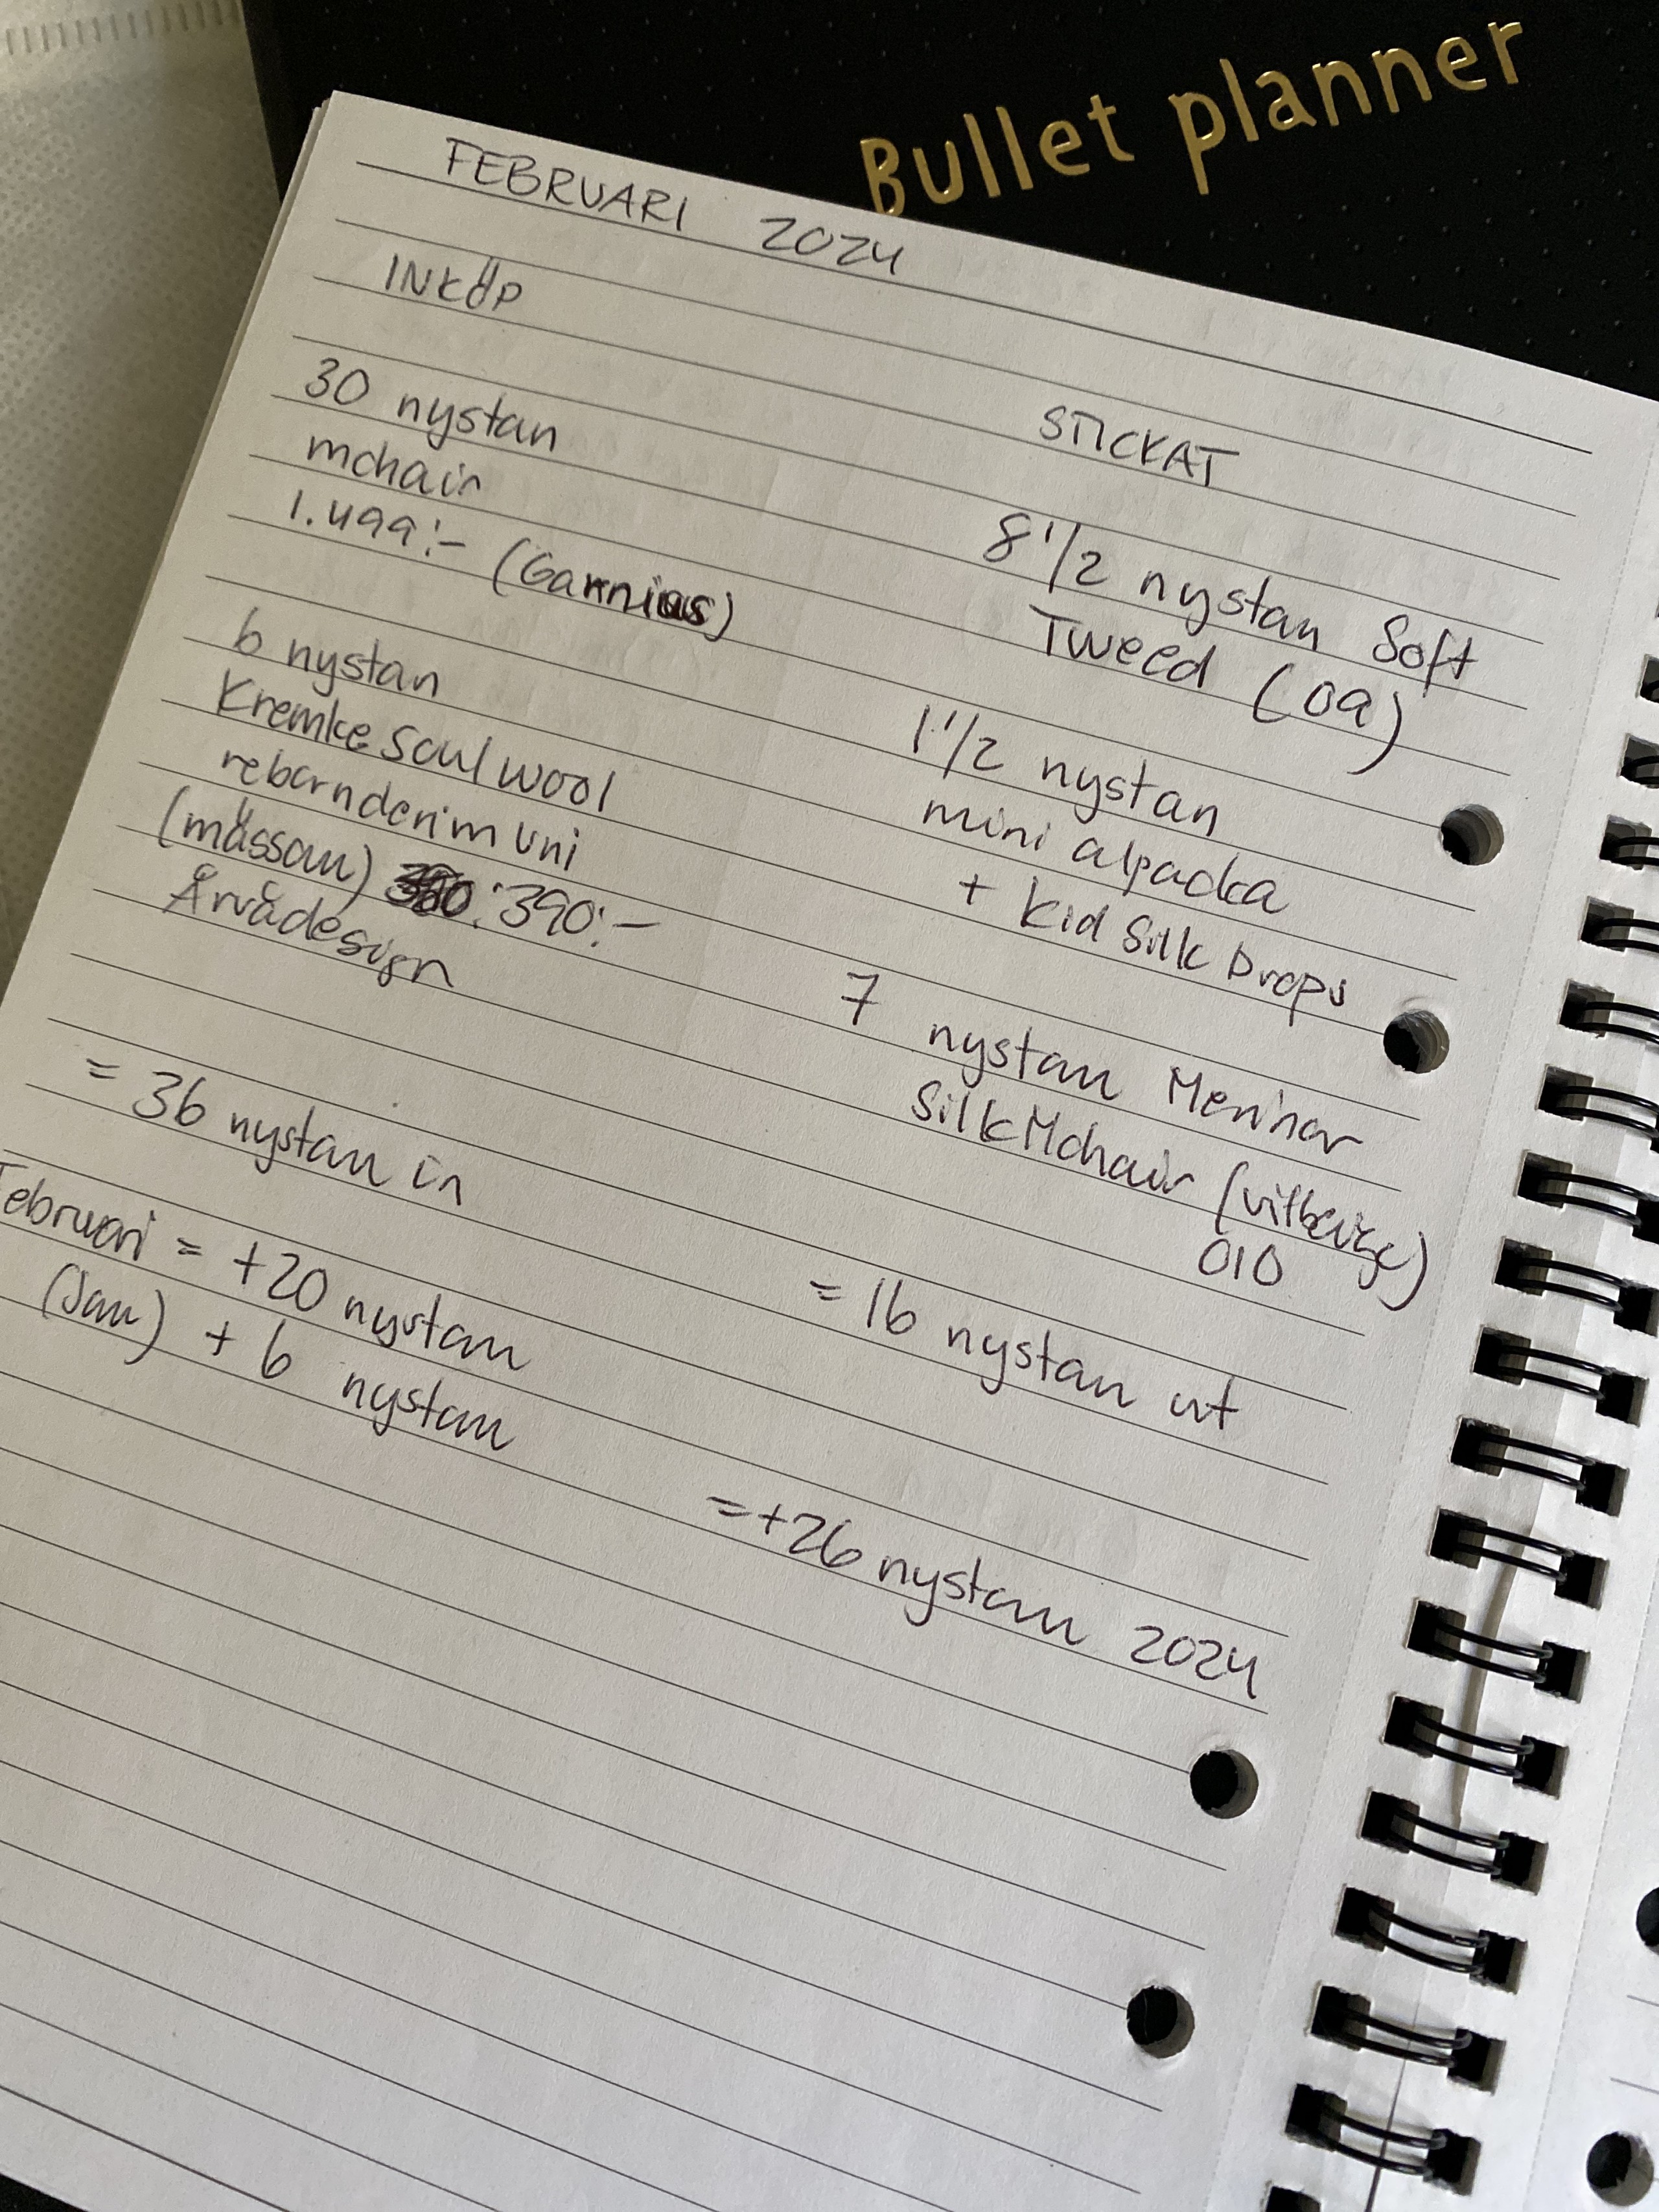 Bullet planner
FEBRUARI 2024
INKÖP
30 nystan
mohair
1.499:- (Garnius)
6 nystan
Kremke Soul wool
reborn denim uni
(mässan) 390:-
Årvådesign
= 36 nystan in
Februari = +20 nystan
(Jan) + 6 nystan
STICKAT
8 1/2 nystan Soft
Tweed (09)
1 1/2 nystan
mini alpacka
+ Kid Silk Drops
7 nystan Merinor
Silk Mohair (vitbeige)
010
= 16 nystan ut
= +26 nystan 2024